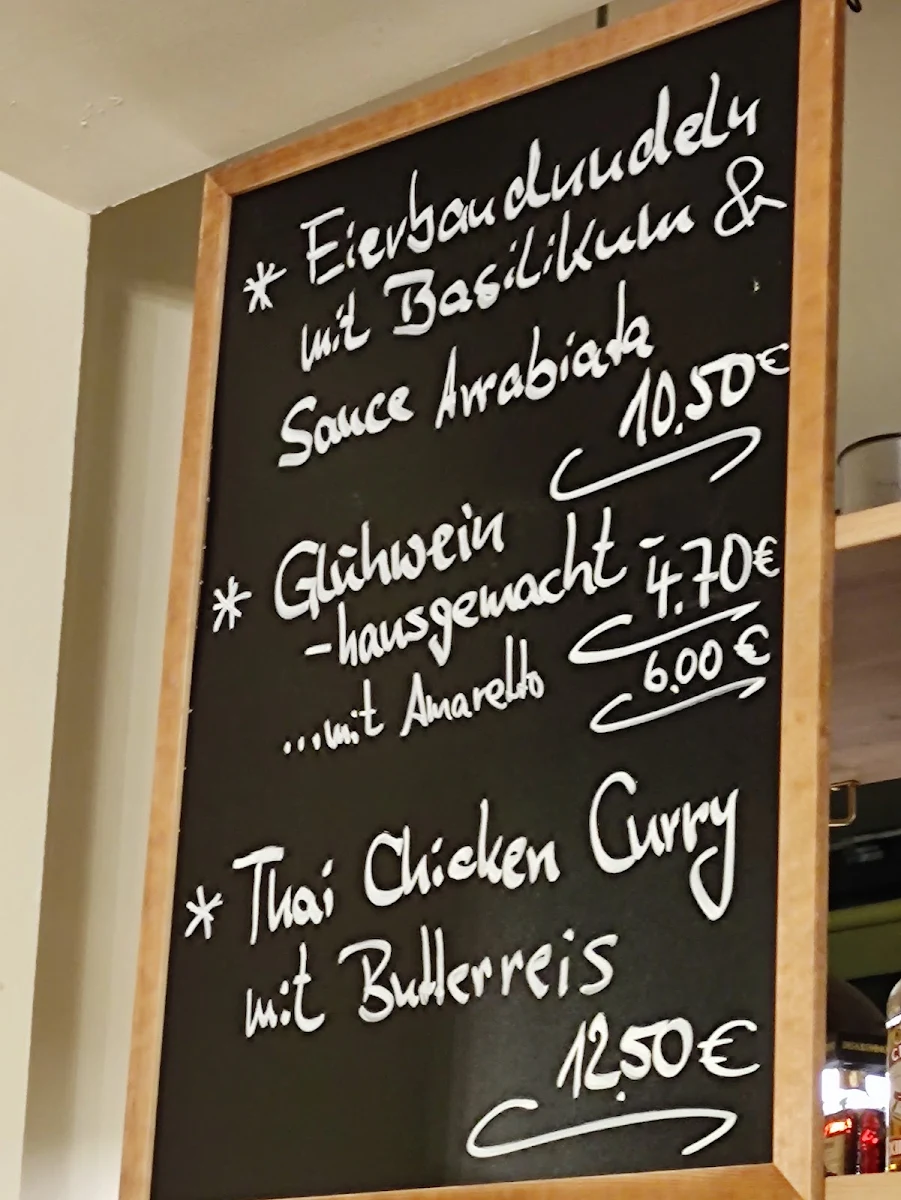 * Eierbandnudeln
mit Basilikum &
Sauce Arrabiata
10,50€
* Glühwein
-hausgemacht- 4.70€
...mit Amaretto 6,00€
* Thai Chicken Curry
mit Butterreis
12,50€